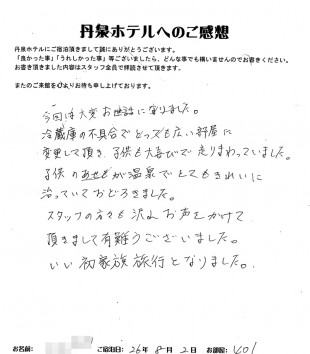 丹泉ホテルへのご感想
丹泉ホテルにご宿泊頂きまして誠にありがとうございます。
「良かった事」「うれしかった事」等ございましたら、どんな事でも構いませんのでお書きください。
お書き頂きました内容はスタッフ全員で拝読させて頂きます。
またのご来館を心よりお待ち申し上げております。
今回は大変お世話になりました。
冷蔵庫の不具合でとっても広い部屋に
変更して頂き、子供も大喜びで走りまわっていました。
子供のあせもが温泉でとてもきれいに
治っていておどろきました。
スタッフの方々も沢山お声をかけて
頂きまして有難うございました。
いい初家族旅行となりました。
お名前: ご宿泊日: 26年 8月 2日 お部屋: 401